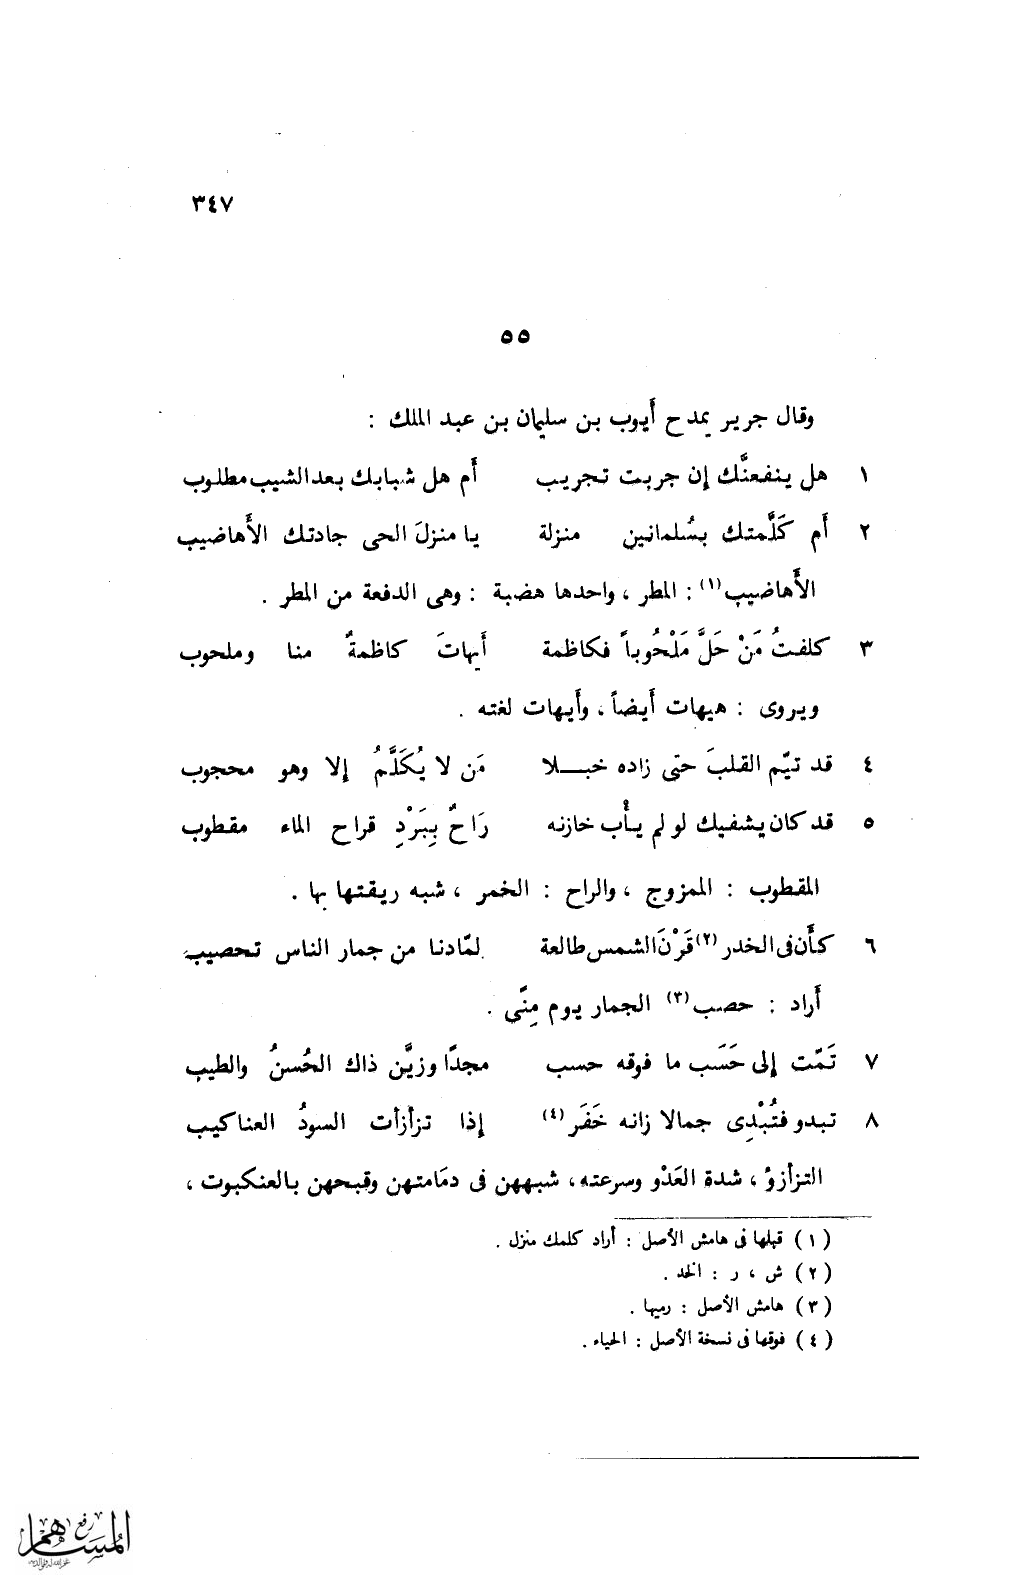 ٣٤٧
٥٥
وقال جرير يمدح أَيوب بن سليمان بن عبد الملك :
١ هل ينفعنَّك إن جربت تجريب أَم هل شبابك بعد الشيب مطلوب
٢ أَم كَلَّمتك بسُلمانين منزلة يا منزلَ الحى جادتك الأَهاضيب
الأَهاضيب(١) : المطر ، واحدها هضبة : وهى الدفعة من المطر .
٣ كلفتُ مَنْ حَلَّ مَلْحُوباً فكاظمة أَيهاتَ كاظمةٌ منا وملحوب
ويروى : هيهات أَيضاً ، وأَيهات لغته .
٤ قد تيّم القلبَ حتى زاده خبـــلا مَن لا يُكَلَّمُ إلا وهو محجوب
٥ قد كان يشفيك لو لم يأْب خازنه رَاحٌ بِبَرْدِ قراح الماء مقطوب
المقطوب : الممزوج ، والراح : الخمر ، شبه ريقتها بها .
٦ كأَن فى الخدر (٢) قَرْنَ الشمس طالعة لمّا دنا من جمار الناس تحصيب
أَراد : حصب(٣) الجمار يوم مِنًى .
٧ تَمّت إلى حَسَب ما فوقه حسب مجدًا وزيَّن ذاك الحُسنُ والطيب
٨ تبدو فتُبْدِى جمالا زانه خَفَر (٤) إذا تزأزأت السودُ العناكيب
التزأزؤ ، شدة العَدْو وسرعته ، شبههن فى دمَامتهن وقبحهن بالعنكبوت ،
(١) قبلها فى هامش الأصل : أراد كلمك منزل .
(٢) ش ، ر : الخد .
(٣) هامش الأصل : رميها .
(٤) فوقها فى نسخة الأصل : الحياء .